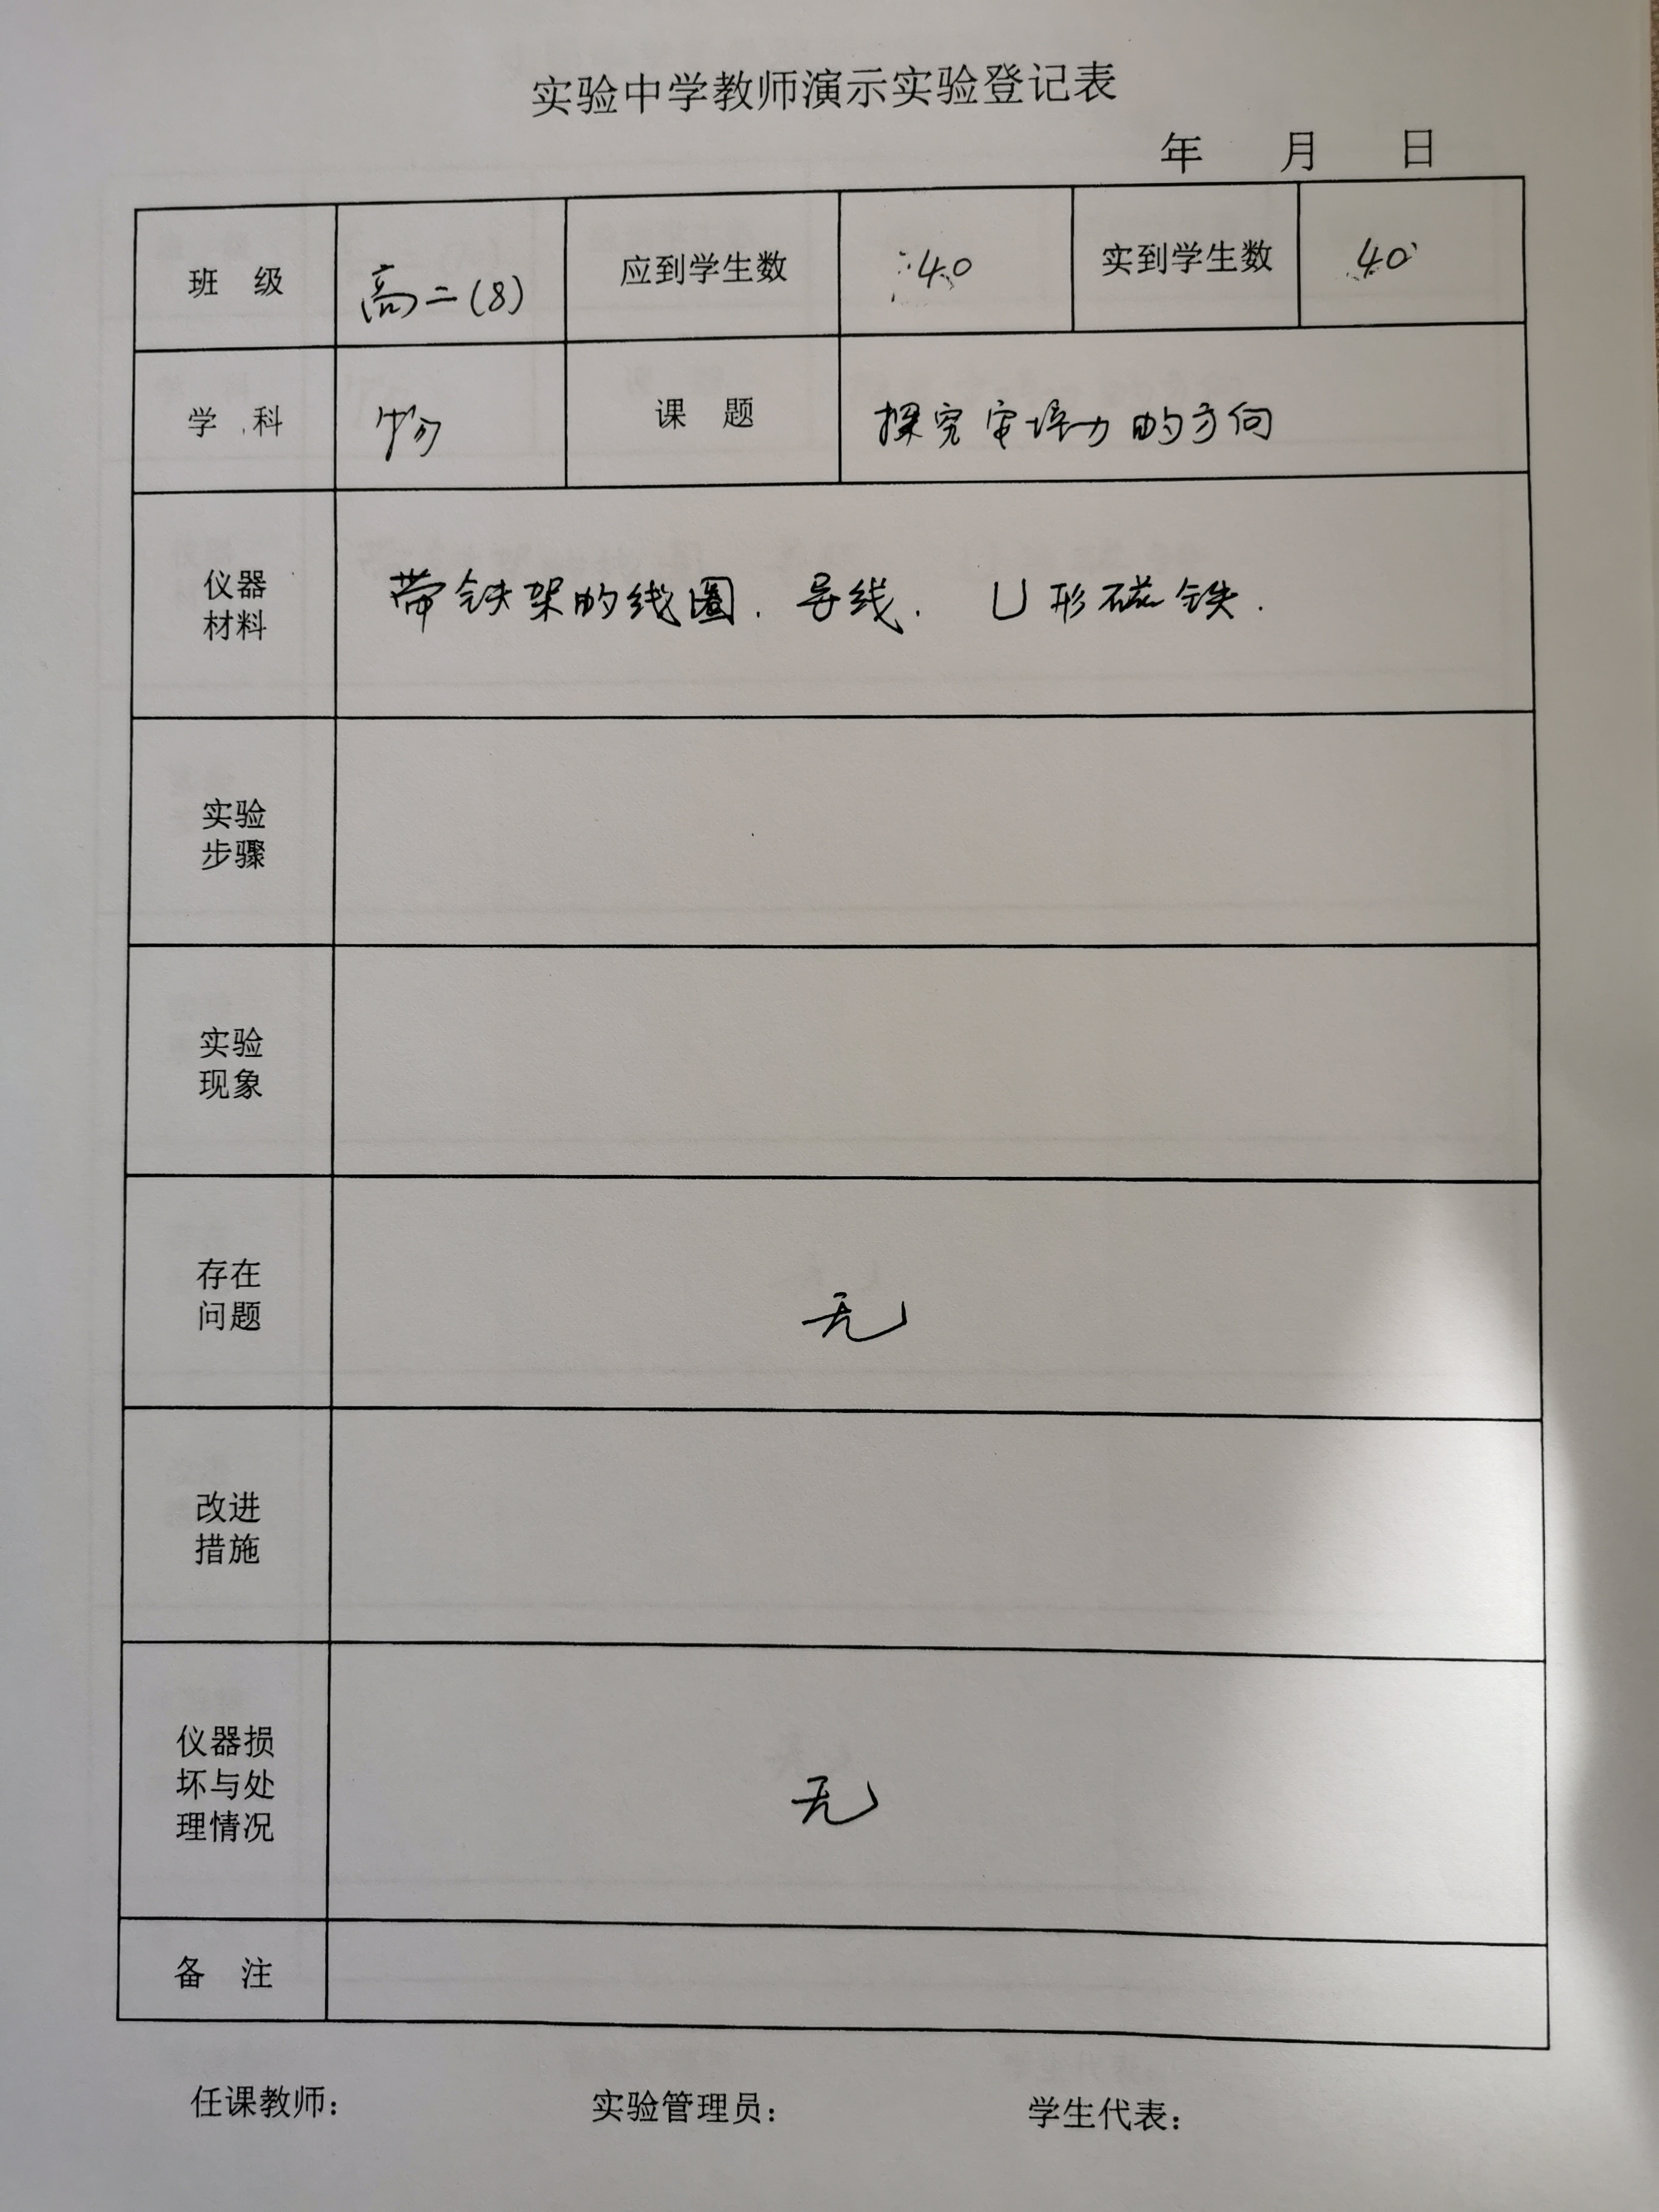 实验中学教师演示实验登记表
年 月 日
班 级 高二(8) 应到学生数 40 实到学生数 40
学 科 物 课 题 探究安培力的方向
仪器
材料
带铁架的线圈. 导线. U形磁铁.
实验
步骤
实验
现象
存在
问题
无
改进
措施
仪器损
坏与处
理情况
无
备 注
任课教师: 实验管理员: 学生代表: